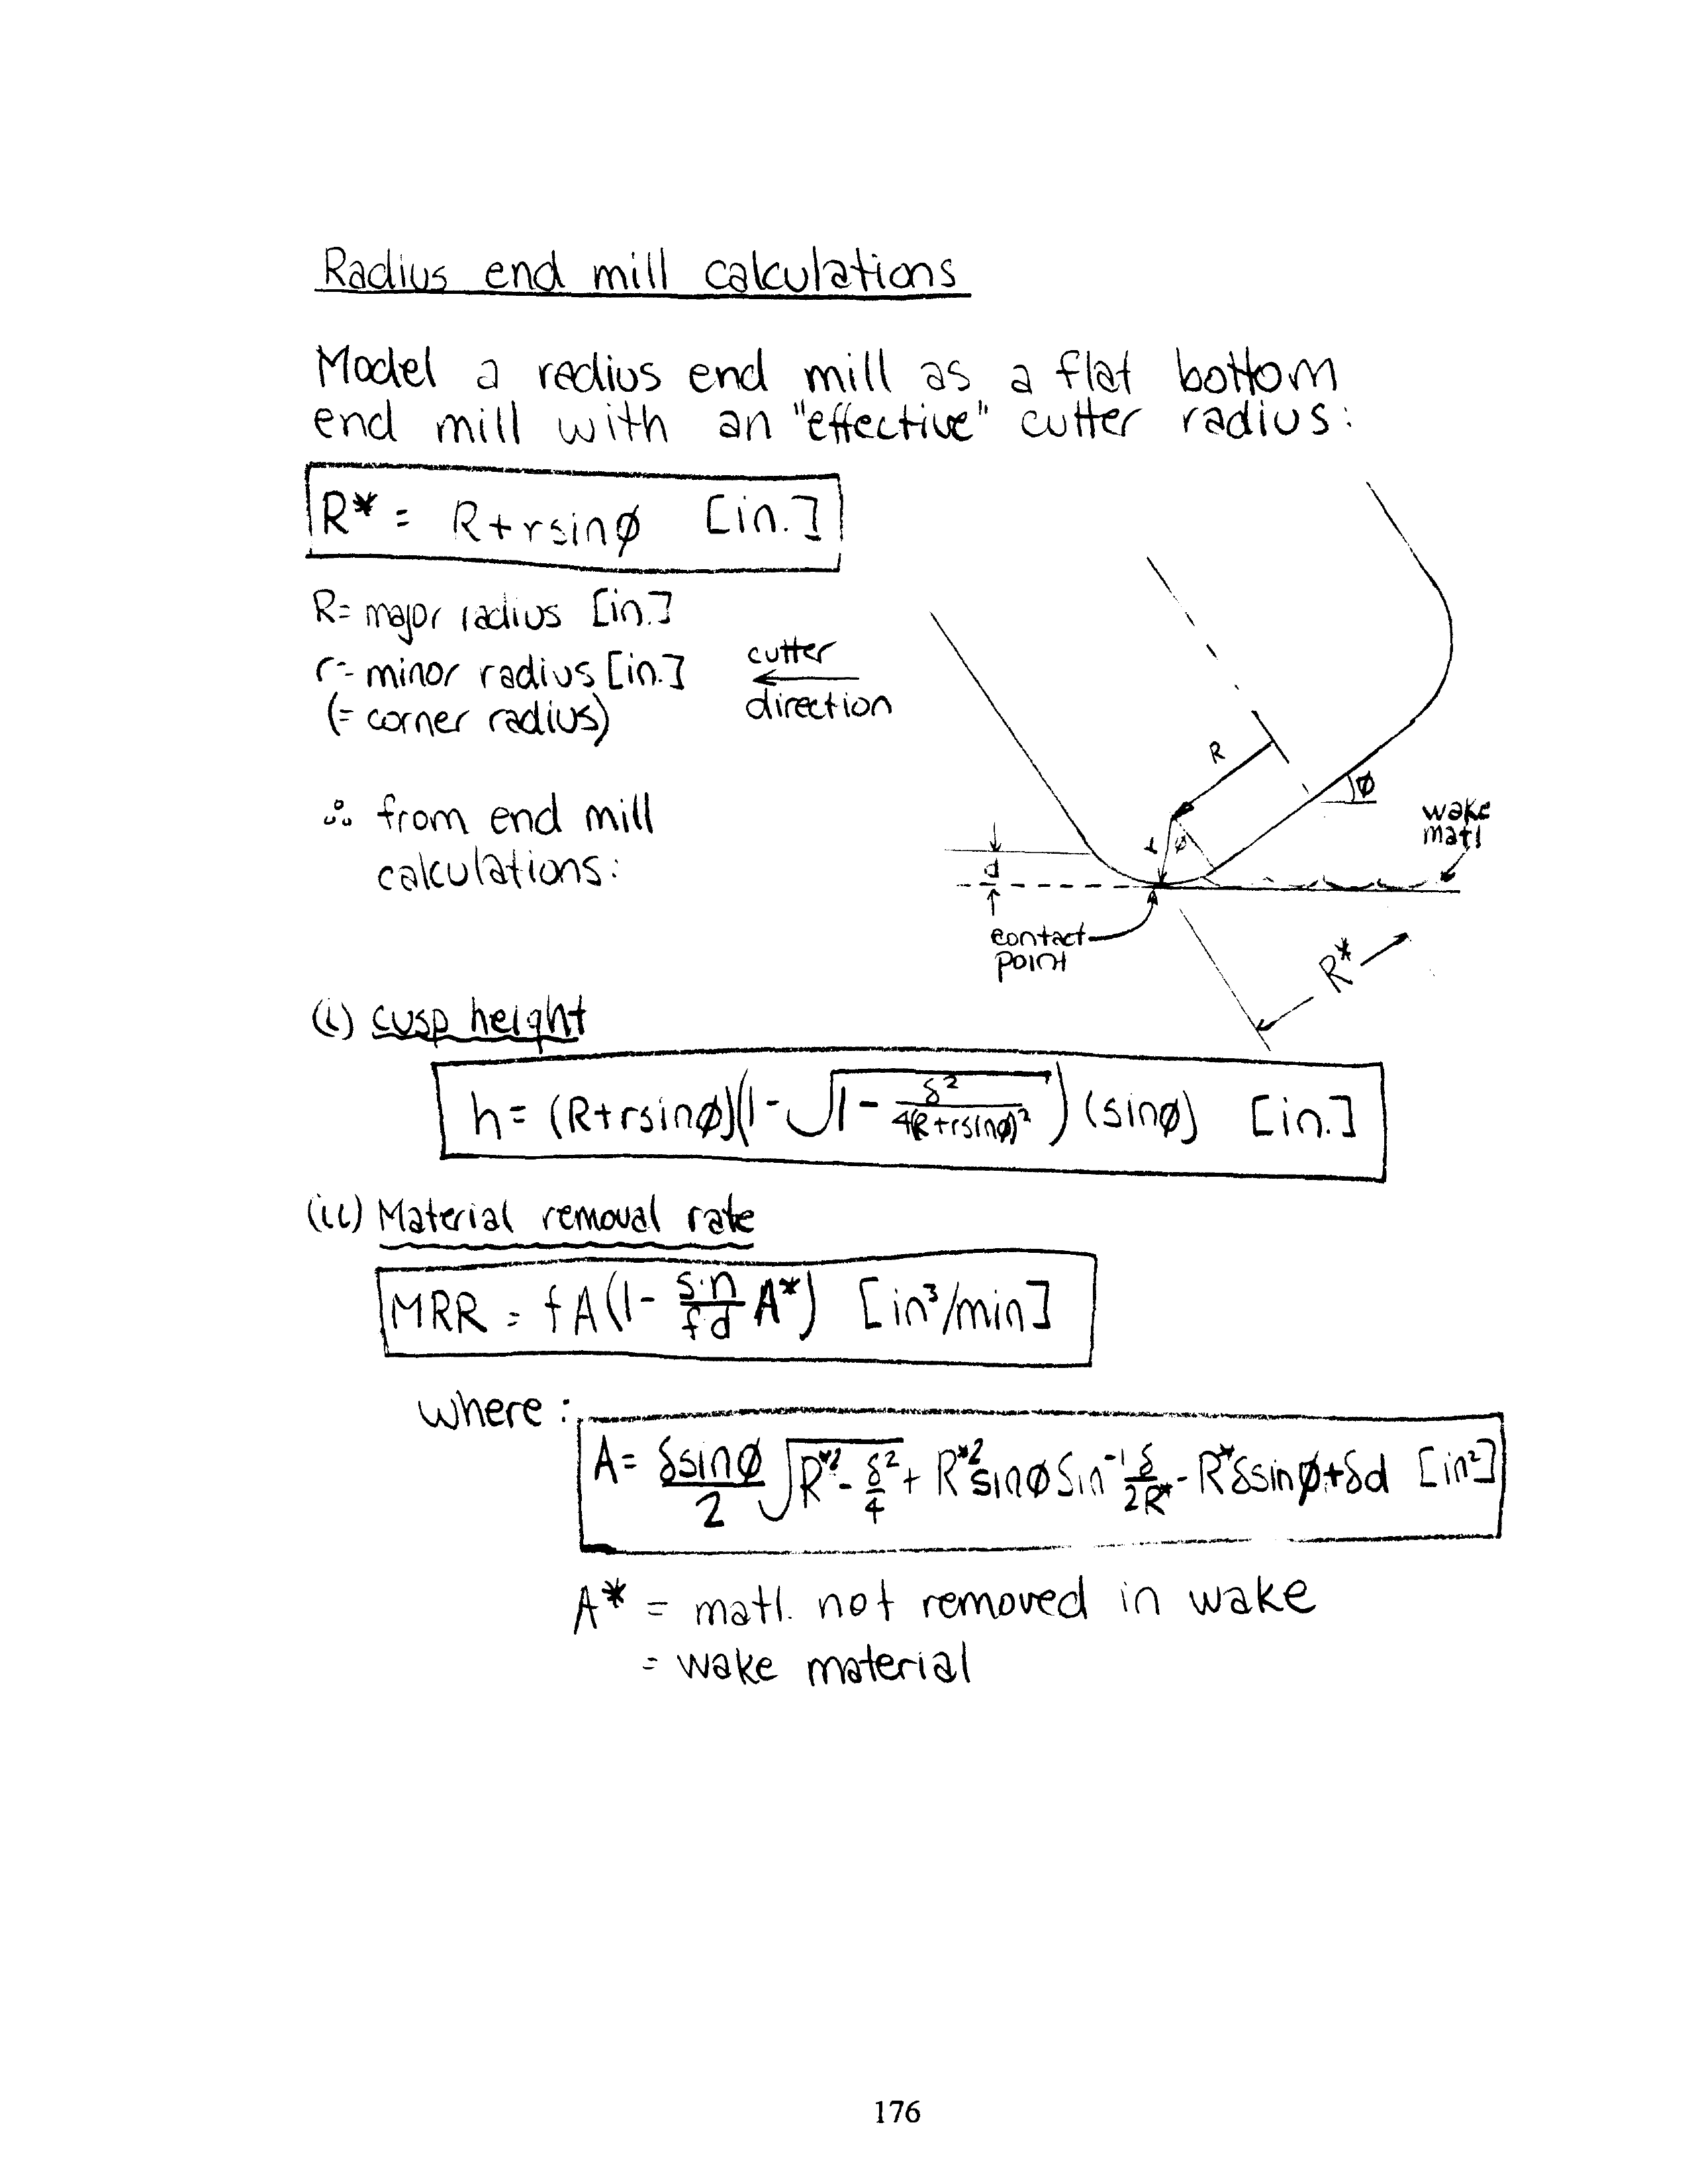 Radius end mill calculations
Model a radius end mill as a flat bottom
end mill with an "effective" cutter radius:
R* = R+rsinø [in.]
R= major radius [in.]
r= minor radius [in.]
(= corner radius)
cutter
direction
R
ø
r
ø
wake
matl
d
contact
point
R*
∴ from end mill
calculations:
(i) cusp height
h= (R+rsinø)(1-√(1-δ²/4(R+rsinø)²))(sinø) [in.]
(ii) Material removal rate
MRR = fA(1- s·n/fd A*) [in³/min]
where:
A= δsinø/2 √(R*²-δ²/4) + R*²sinø Sin⁻¹ δ/2R* - R*δsinø+δd [in²]
A* = matl. not removed in wake
= wake material
176